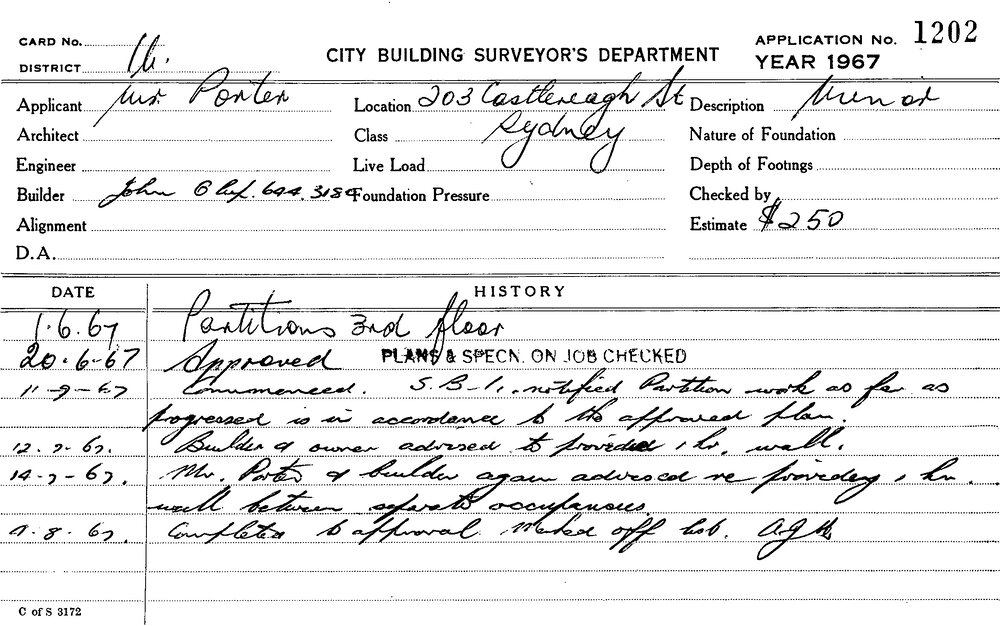 CARD No.
CITY BUILDING SURVEYOR'S DEPARTMENT
APPLICATION No. 1202
DISTRICT
YEAR 1967
Applicant Mr. Porter Location 203 Castlereagh St Description Minor
Architect Class Sydney Nature of Foundation
Engineer Live Load Depth of Footings
Builder John 644.3189 Foundation Pressure Checked by
Alignment Estimate $250
D.A.
DATE HISTORY
1.6.67 Partitions 3rd floor
20.6.67 Approved PLANS & SPECN. ON JOB CHECKED
11-7-67 Commenced. S.B-1. notified Partition work as far as
progressed is in accordance to the approved plan.
12.7.67. Builder & owner advised to provided 1 hr. wall.
14-7-67. Mr. Porter & builder again advised re providing 1 hr.
wall between separate occupancies.
9.8.67. Completed to approval. Marked off list.
C of S 3172